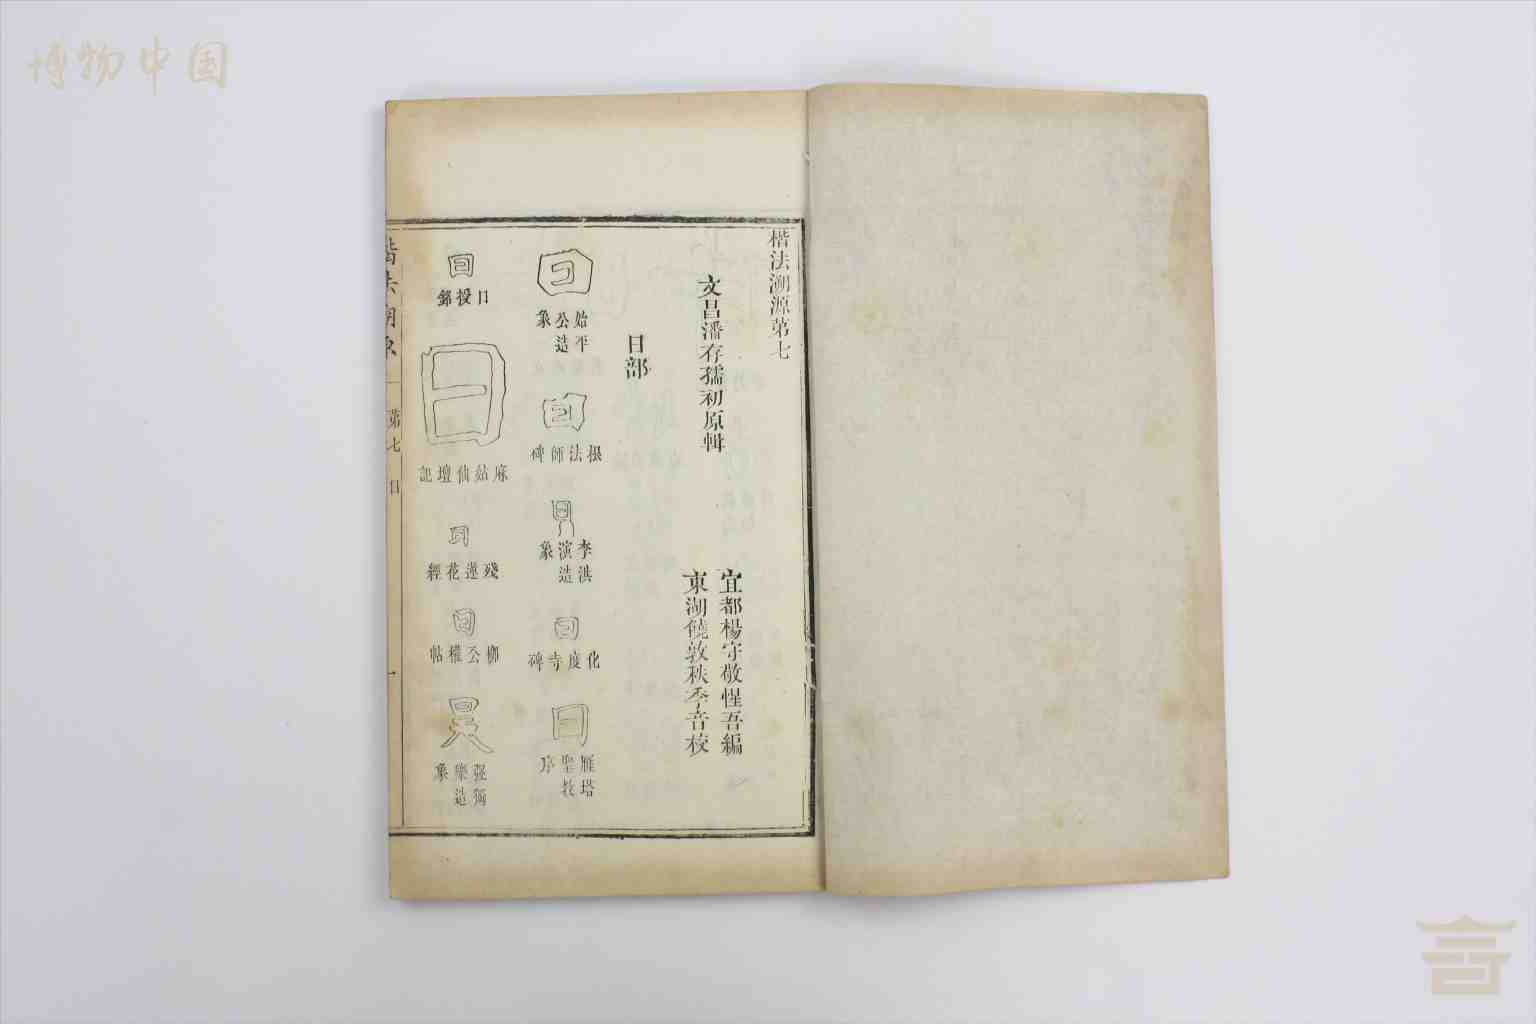 博物中国
楷法溯源第七
文昌潘存孺初原輯
宜都楊守敬惺吾編
東湖饒敦秩季音校
日部
始平公造象
根法師碑
李洪演造象
化度寺碑
雁塔聖教序
麻姑仙壇記
殘蓮花經
柳公權帖
張獨樂造象
楷法溯源
第七
日
一